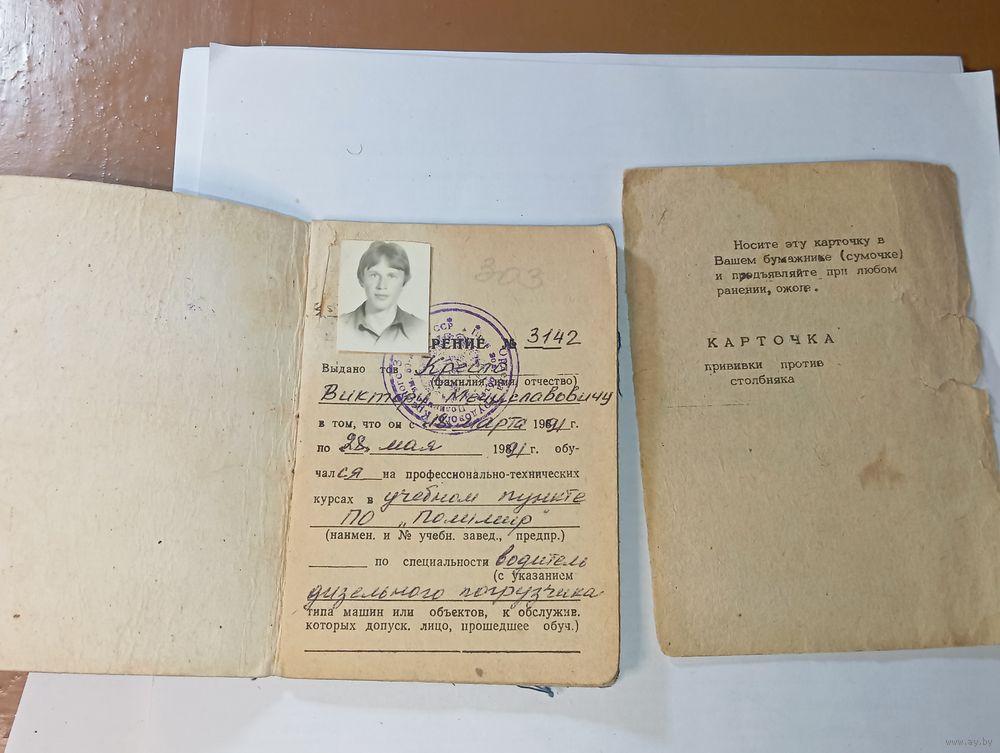 303
РЕНИЕ № 3142
Выдано тов Крест
(фамилия, имя, отчество)
Виктору Мечиславовичу
в том, что он с 18 марта 1991 г.
по 28 мая 1991 г. обу-
чался на профессионально-технических
курсах в учебном пункте
ПО „Полимир"
(наимен. и № учебн. завед., предпр.)
по специальности водитель
(с указанием
дизельного погрузчика
типа машин или объектов, к обслужив.
которых допуск. лицо, прошедшее обуч.)
Носите эту карточку в
Вашем бумажнике (сумочке)
и предъявляйте при любом
ранении, ожоге.
КАРТОЧКА
прививки против
столбняка
www.ay.by